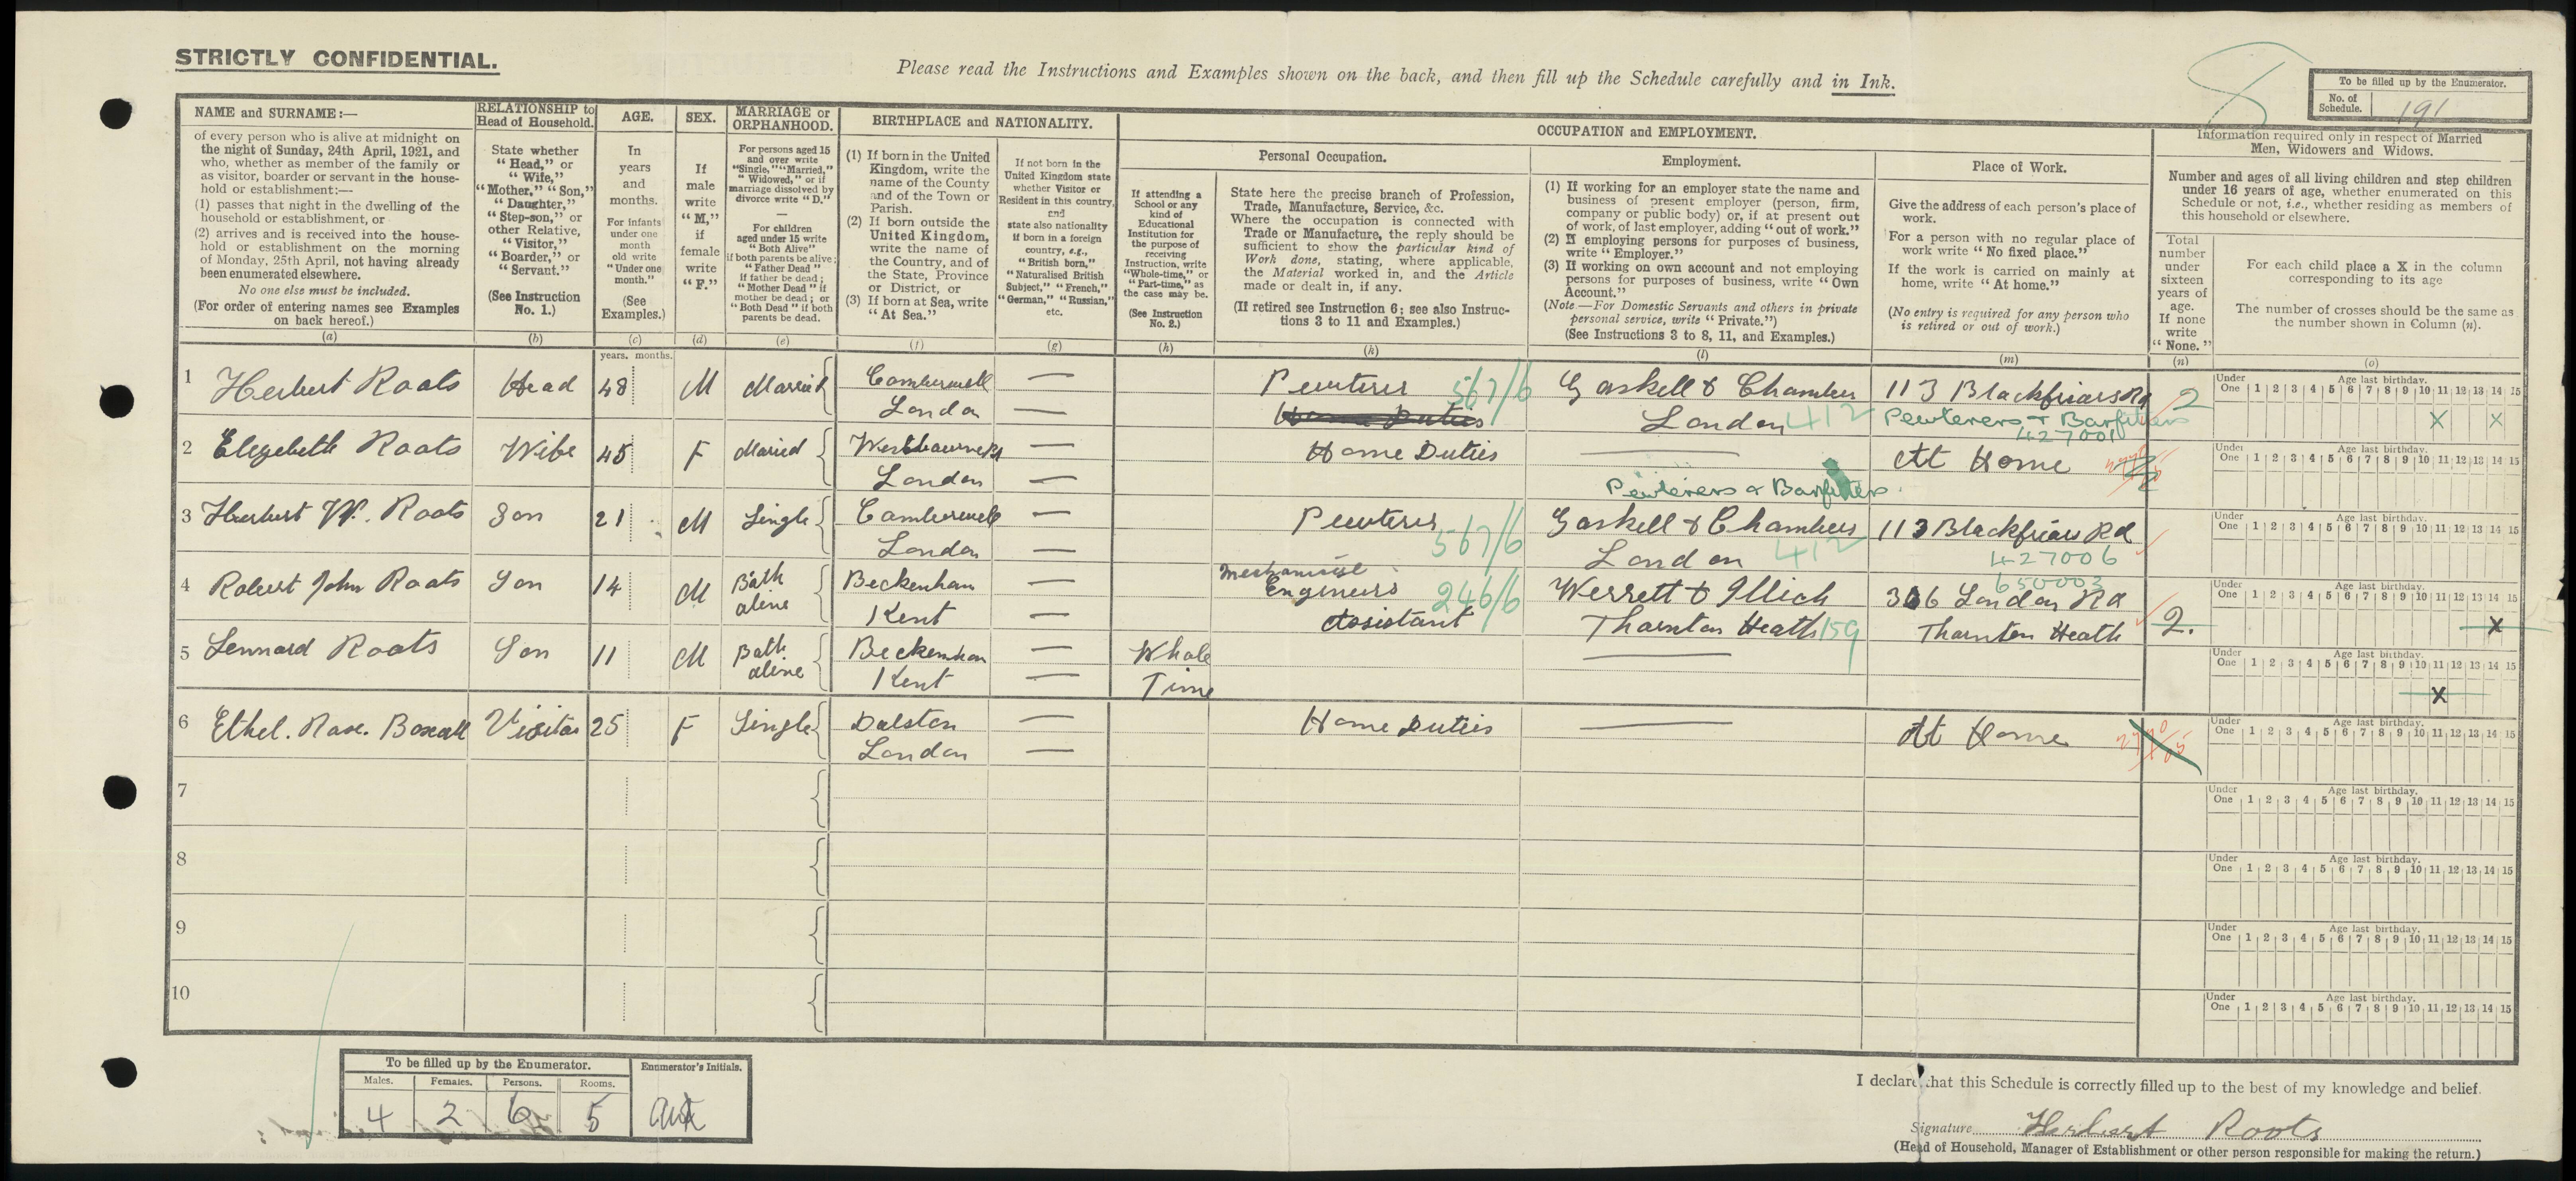 STRICTLY CONFIDENTIAL.
Please read the Instructions and Examples shown on the back, and then fill up the Schedule carefully and in Ink.
To be filled up by the Enumerator.
No. of Schedule. 191
NAME and SURNAME:—
of every person who is alive at midnight on
the night of Sunday, 24th April, 1921, and
who, whether as member of the family or
as visitor, boarder or servant in the house-
hold or establishment:—
(1) passes that night in the dwelling of the
household or establishment, or
(2) arrives and is received into the house-
hold or establishment on the morning
of Monday, 25th April, not having already
been enumerated elsewhere.
No one else must be included.
(For order of entering names see Examples
on back hereof.)
(a)
RELATIONSHIP to
Head of Household.
State whether
"Head," or
"Wife,"
"Mother," "Son,"
"Daughter,"
"Step-son," or
other Relative,
"Visitor,"
"Boarder," or
"Servant."
(See Instruction
No. 1.)
(b)
AGE.
In
years
and
months.
For infants
under one
month
old write
"Under one
month."
(See
Examples.)
(c)
SEX.
If
male
write
"M."
if
female
write
"F."
(d)
MARRIAGE or
ORPHANHOOD.
For persons aged 15
and over write
"Single," "Married,"
"Widowed," or if
marriage dissolved by
divorce write "D."
—
For children
aged under 15 write
"Both Alive"
if both parents be alive;
"Father Dead"
if father be dead;
"Mother Dead" if
mother be dead; or
"Both Dead" if both
parents be dead.
(e)
BIRTHPLACE and NATIONALITY.
(1) If born in the United
Kingdom, write the
name of the County
and of the Town or
Parish.
(2) If born outside the
United Kingdom,
write the name of
the Country, and of
the State, Province
or District, or
(3) If born at Sea, write
"At Sea."
(f)
If not born in the
United Kingdom state
whether Visitor or
Resident in this country,
and
state also nationality
if born in a foreign
country, e.g.,
"British born,"
"Naturalised British
Subject," "French,"
"German," "Russian,"
etc.
(g)
OCCUPATION and EMPLOYMENT.
Personal Occupation.
If attending a
School or any
kind of
Educational
Institution for
the purpose of
receiving
Instruction, write
"Whole-time," or
"Part-time," as
the case may be.
(See Instruction
No. 2.)
(h)
State here the precise branch of Profession,
Trade, Manufacture, Service, &c.
Where the occupation is connected with
Trade or Manufacture, the reply should be
sufficient to show the particular kind of
Work done, stating, where applicable,
the Material worked in, and the Article
made or dealt in, if any.
(If retired see Instruction 6; see also Instruc-
tions 3 to 11 and Examples.)
(k)
Employment.
(1) If working for an employer state the name and
business of present employer (person, firm,
company or public body) or, if at present out
of work, of last employer, adding "out of work."
(2) If employing persons for purposes of business,
write "Employer."
(3) If working on own account and not employing
persons for purposes of business, write "Own
Account."
(Note.—For Domestic Servants and others in private
personal service, write "Private.")
(See Instructions 3 to 8, 11, and Examples.)
(l)
Place of Work.
Give the address of each person's place of
work.
For a person with no regular place of
work write "No fixed place."
If the work is carried on mainly at
home, write "At home."
(No entry is required for any person who
is retired or out of work.)
(m)
Information required only in respect of Married
Men, Widowers and Widows.
Number and ages of all living children and step children
under 16 years of age, whether enumerated on this
Schedule or not, i.e., whether residing as members of
this household or elsewhere.
Total
number
under
sixteen
years of
age.
If none
write
"None."
(n)
For each child place a X in the column
corresponding to its age
The number of crosses should be the same as
the number shown in Column (n).
(o)
years. months.
Under One Age last birthday. 1 2 3 4 5 6 7 8 9 10 11 12 13 14 15
1 Herbert Roots Head 48 M Married Camberwell — Pewterer 567/6 Gaskell & Chambers 113 Blackfriars Rd 2 X X
London — Home Duties London 412 Pewterers & Barfitters
427001
Under One Age last birthday. 1 2 3 4 5 6 7 8 9 10 11 12 13 14 15
2 Elezebeth Roots Wife 45 F Maried — Home Duties — At Home
London —
Pewterers & Barfitters
Under One Age last birthday. 1 2 3 4 5 6 7 8 9 10 11 12 13 14 15
3 Herbert W. Roots Son 21 M Single Camberwell — Pewterer 567/6 Gaskell & Chambers 113 Blackfriars Rd
London — London 412 427006
650003
Under One Age last birthday. 1 2 3 4 5 6 7 8 9 10 11 12 13 14 15
4 Robert John Roots Son 14 M Both Beckenham — Engineers 246/6 Werrett & Illich 306 London Rd
alive Kent — Assistant Thornton Heath 159 Thornton Heath 2. X
Under One Age last birthday. 1 2 3 4 5 6 7 8 9 10 11 12 13 14 15
5 Lennard Roots Son 11 M Both Beckenham — Whole —
alive Kent — Time X
Under One Age last birthday. 1 2 3 4 5 6 7 8 9 10 11 12 13 14 15
6 Ethel. Rose. Boxall Visitor 25 F Single Dalston — Home Duties — At Home
London —
7 Under One Age last birthday. 1 2 3 4 5 6 7 8 9 10 11 12 13 14 15
8 Under One Age last birthday. 1 2 3 4 5 6 7 8 9 10 11 12 13 14 15
9 Under One Age last birthday. 1 2 3 4 5 6 7 8 9 10 11 12 13 14 15
10 Under One Age last birthday. 1 2 3 4 5 6 7 8 9 10 11 12 13 14 15
To be filled up by the Enumerator.
Enumerator's Initials.
Males. Females. Persons. Rooms.
4 2 6 5
I declare that this Schedule is correctly filled up to the best of my knowledge and belief.
Signature Herbert Roots
(Head of Household, Manager of Establishment or other person responsible for making the return.)